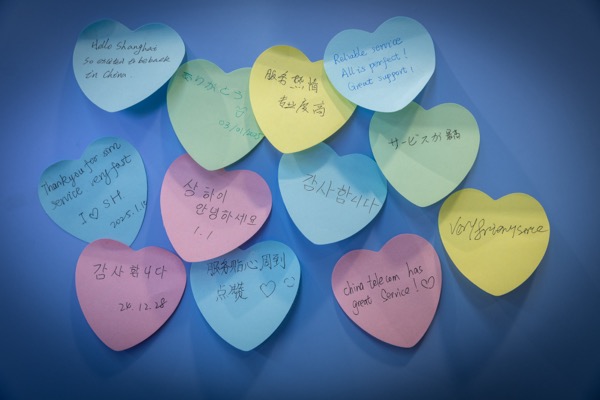 Hello Shanghai
So excited to be back
in China
ありがとう
服务热情
专业度高
Reliable service
All is perfect!
Great support!
サービスが最高
Thank you for sim
service very fast
I ♡ SH
상하이
안녕하세요
1.1
감사합니다
감사합니다
24.12.28
服务贴心周到
点赞 ♡
china telecom has
great service! ♡
Very